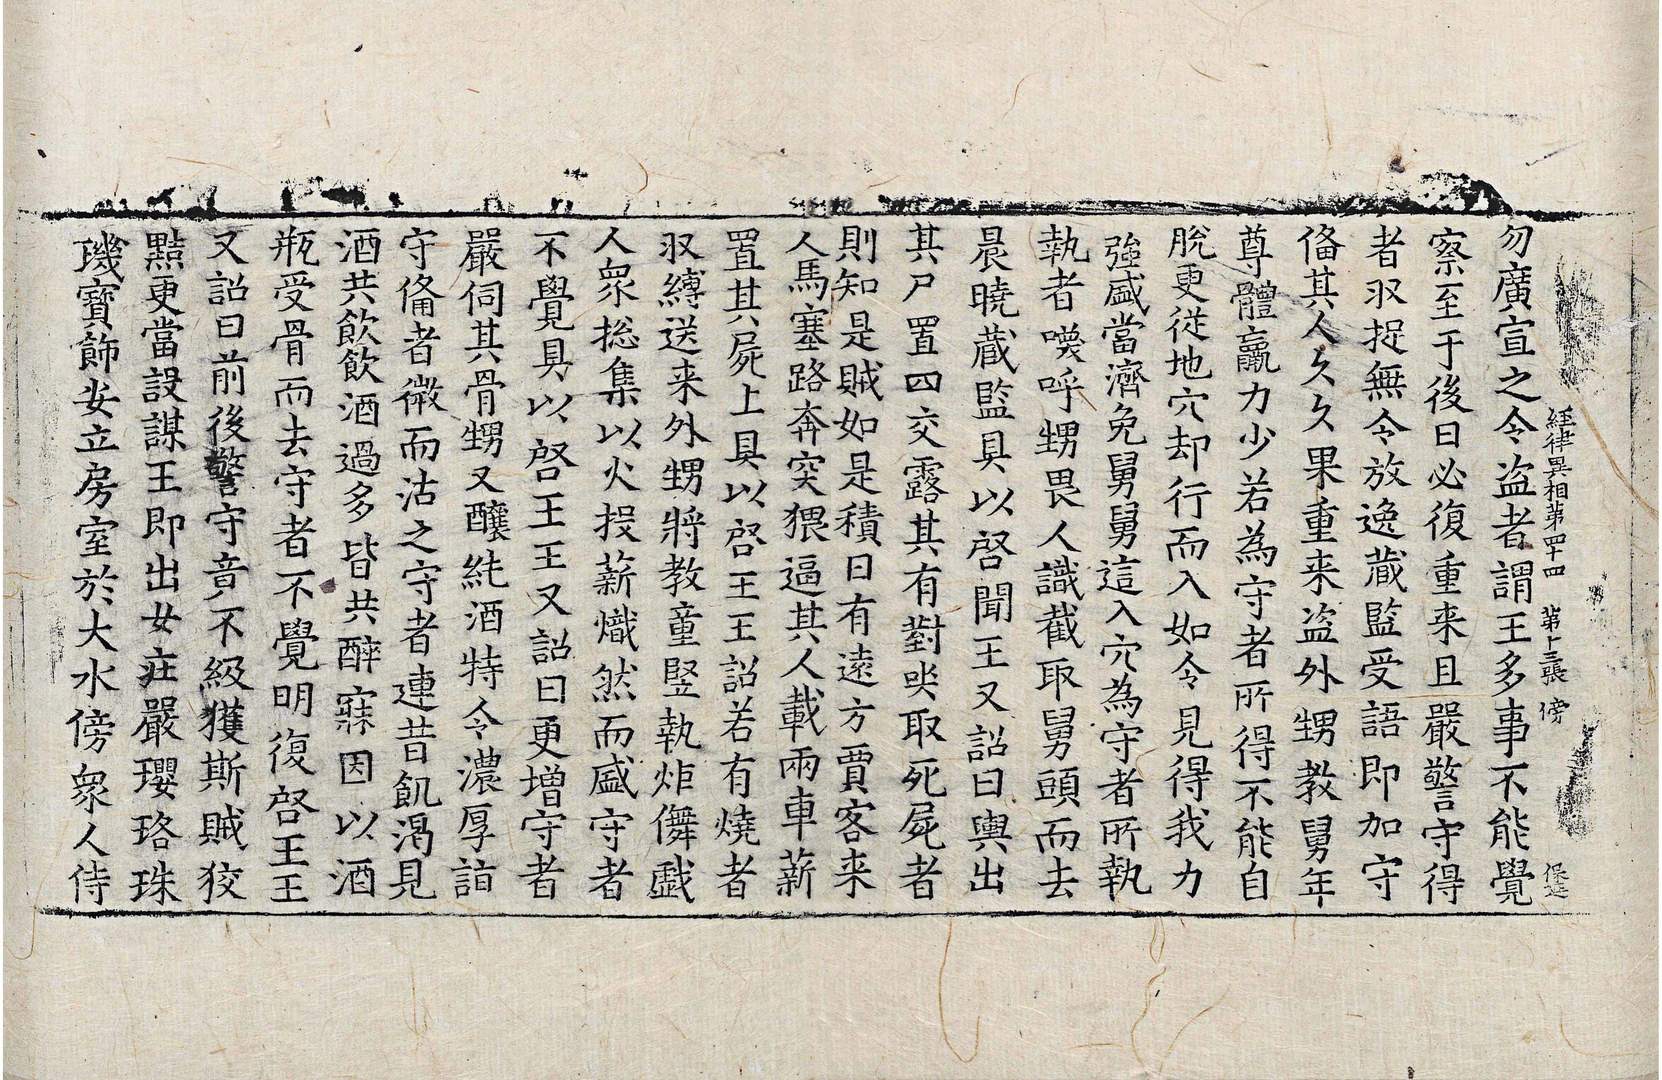 經律異相第四十四　第十三張　傍
勿廣宣之令盗者謂王多事不能覺
察至于後日必復重来且嚴警守得
者収捉無令放逸蔵監受語即加守
俻其人久久果重来盗外甥教舅年
尊體羸力少若為守者所得不能自
脫更従地穴却行而入如令見得我力
強盛當濟免舅舅這入穴為守者所執
執者喚呼甥畏人識截取舅頭而去
晨曉蔵監具以啓聞王又詔曰輿出
其尸置四交露其有對哭取死屍者
則知是賊如是積日有遠方賈客来
人馬塞路奔突猥逼其人載兩車薪
置其屍上具以啓王王詔若有燒者
収縛送来外甥將教童竪執炬儛戯
人衆揔集以火投薪熾然而盛守者
不覺具以啓王王又詔曰更增守者
嚴伺其骨甥又釀純酒特令濃厚詣
守俻者微而沽之守者連昔飢渇見
酒共飲飲酒過多皆共醉寐因以酒
瓶受骨而去守者不覺明復啓王王
又詔曰前後警守竟不級獲斯賊狡
黠更當設謀王即出女庄嚴瓔珞珠
璣寶飾安立房室於大水傍衆人侍